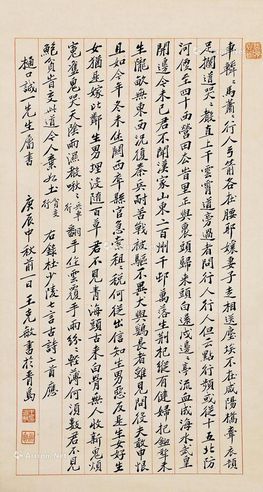 車轔々馬蕭々行人弓箭各在腰耶孃妻子走相送塵埃不見咸陽橋牽衣頓
足攔道哭々聲直上干雲霄道旁過者問行人行人但云點行頻或從十五北防
河便至四十西營田去時里正與裹頭歸來頭白還戍邊々亭流血成海水武皇
開邊意未已君不聞漢家山東二百州千邨萬落生荆杞縱有健婦把鋤犂禾
生隴畝無東西況復秦兵耐苦戰被驅不異犬與雞長者雖見問役夫敢申恨
且如今年冬未休關西卒縣官急索租々稅何從出信知生男惡反是生女好生
女猶是嫁比鄰生男埋沒隨百草君不見青海頭古來白骨無人收新鬼煩
冤舊鬼哭天陰雨濕聲啾々兵車行翻手作雲覆手雨紛々輕薄何須數君不見
管鮑貧時交此道今人棄如土貧交行右錄杜少陵七言古詩二首應
樋口誠一先生屬書 庚辰中秋前一日王克敏書於青島